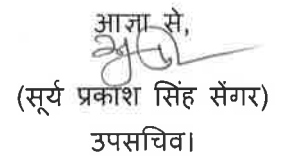 आज्ञा से,
(सूर्य प्रकाश सिंह सेंगर)
उपसचिव।